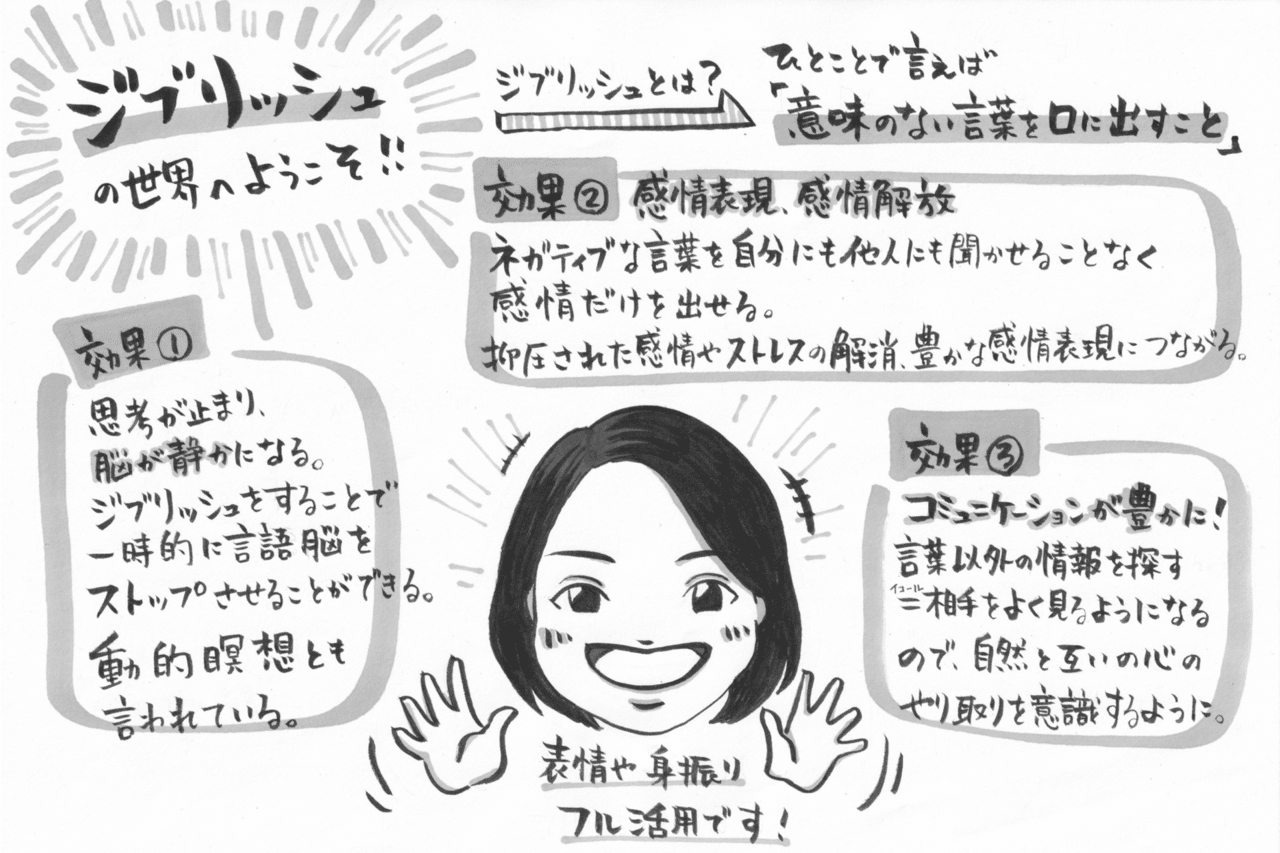 ジブリッシュ
の世界へようこそ!!
ジブリッシュとは?
ひとことで言えば
「意味のない言葉を口に出すこと」
効果①
思考が止まり、
脳が静かになる。
ジブリッシュをすることで
一時的に言語脳を
ストップさせることができる。
動的瞑想とも
言われている。
効果② 感情表現、感情解放
ネガティブな言葉を自分にも他人にも聞かせることなく
感情だけを出せる。
抑圧された感情やストレスの解消、豊かな感情表現につながる。
効果③
コミュニケーションが豊かに!
言葉以外の情報を探す
イコール
=相手をよく見るようになる
ので、自然と互いの心の
やり取りを意識するように。
表情や身振り
フル活用です!